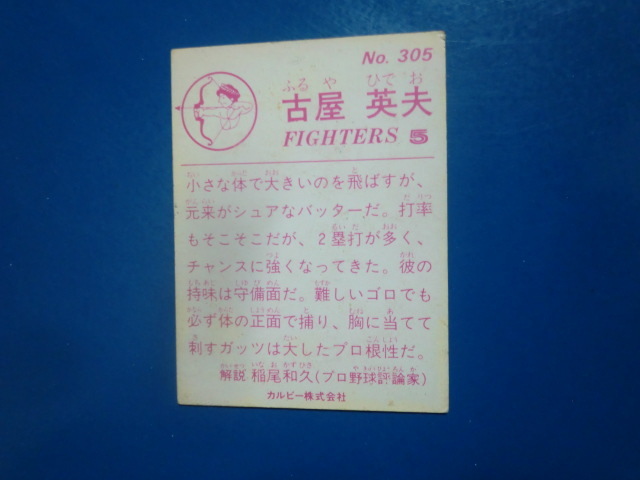 No. 305
ふるや ひでお
古屋 英夫
FIGHTERS 5
小さな体で大きいのを飛ばすが、
元来がシュアなバッターだ。打率
もそこそこだが、2塁打が多く、
チャンスに強くなってきた。彼の
持味は守備面だ。難しいゴロでも
必ず体の正面で捕り、胸に当てて
刺すガッツは大したプロ根性だ。
解説 稲尾和久(プロ野球評論家)
カルビー株式会社